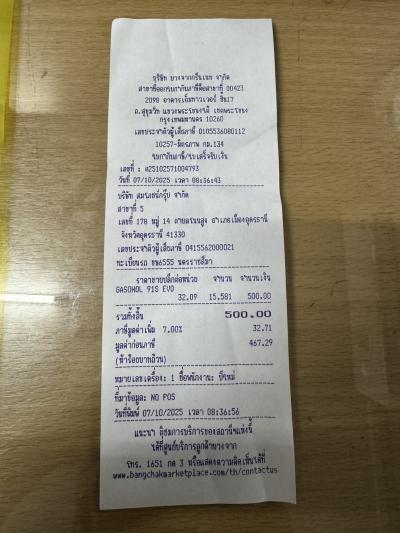 บริษัท บางจากกรีนเนท จำกัด
สาขาที่ออกใบกำกับภาษีคือสาขาที่ 00423
2098 อาคารเอ็มทาวเวอร์ ชั้น17
ถ.สุขุมวิท แขวงพระโขนงใต้ เขตพระโขนง
กรุงเทพมหานคร 10260
เลขประจำตัวผู้เสียภาษี 0105536080112
10257-มิตรภาพ กม.134
ใบกำกับภาษี/ใบเสร็จรับเงิน
เลขที่ : 025102571004793
วันที่ 07/10/2025 เวลา 08:36:43
บริษัท สมรภชน์กรุ๊ป จำกัด
สาขาที่ 5
เลขที่ 178 หมู่ 14 ตำบลโนนสูง อำเภอเมืองอุดรธานี
จังหวัดอุดรธานี 41330
เลขประจำตัวผู้เสียภาษี 0415562000021
ทะเบียนรถ ขษ6555 นครราชสีมา
ราคาขายปลีกต่อหน่วย จำนวน จำนวนเงิน
GASOHOL 91S EVO
32.09 15.581 500.00
รวมทั้งสิ้น 500.00
ภาษีมูลค่าเพิ่ม 7.00% 32.71
มูลค่าก่อนภาษี 467.29
(ห้าร้อยบาทถ้วน)
หมายเลขเครื่อง: 1 ชื่อพนักงาน: ปีใหม่
ที่มาข้อมูล: NO POS
วันที่พิมพ์ 07/10/2025 เวลา 08:36:56
แนะนำ ติชมการบริการของสถานีฯแห่งนี้
ได้ที่ศูนย์บริการลูกค้าบางจาก
โทร. 1651 กด 3 หรือแสดงความคิดเห็นได้ที่
www.bangchakmarketplace.com/th/contactus